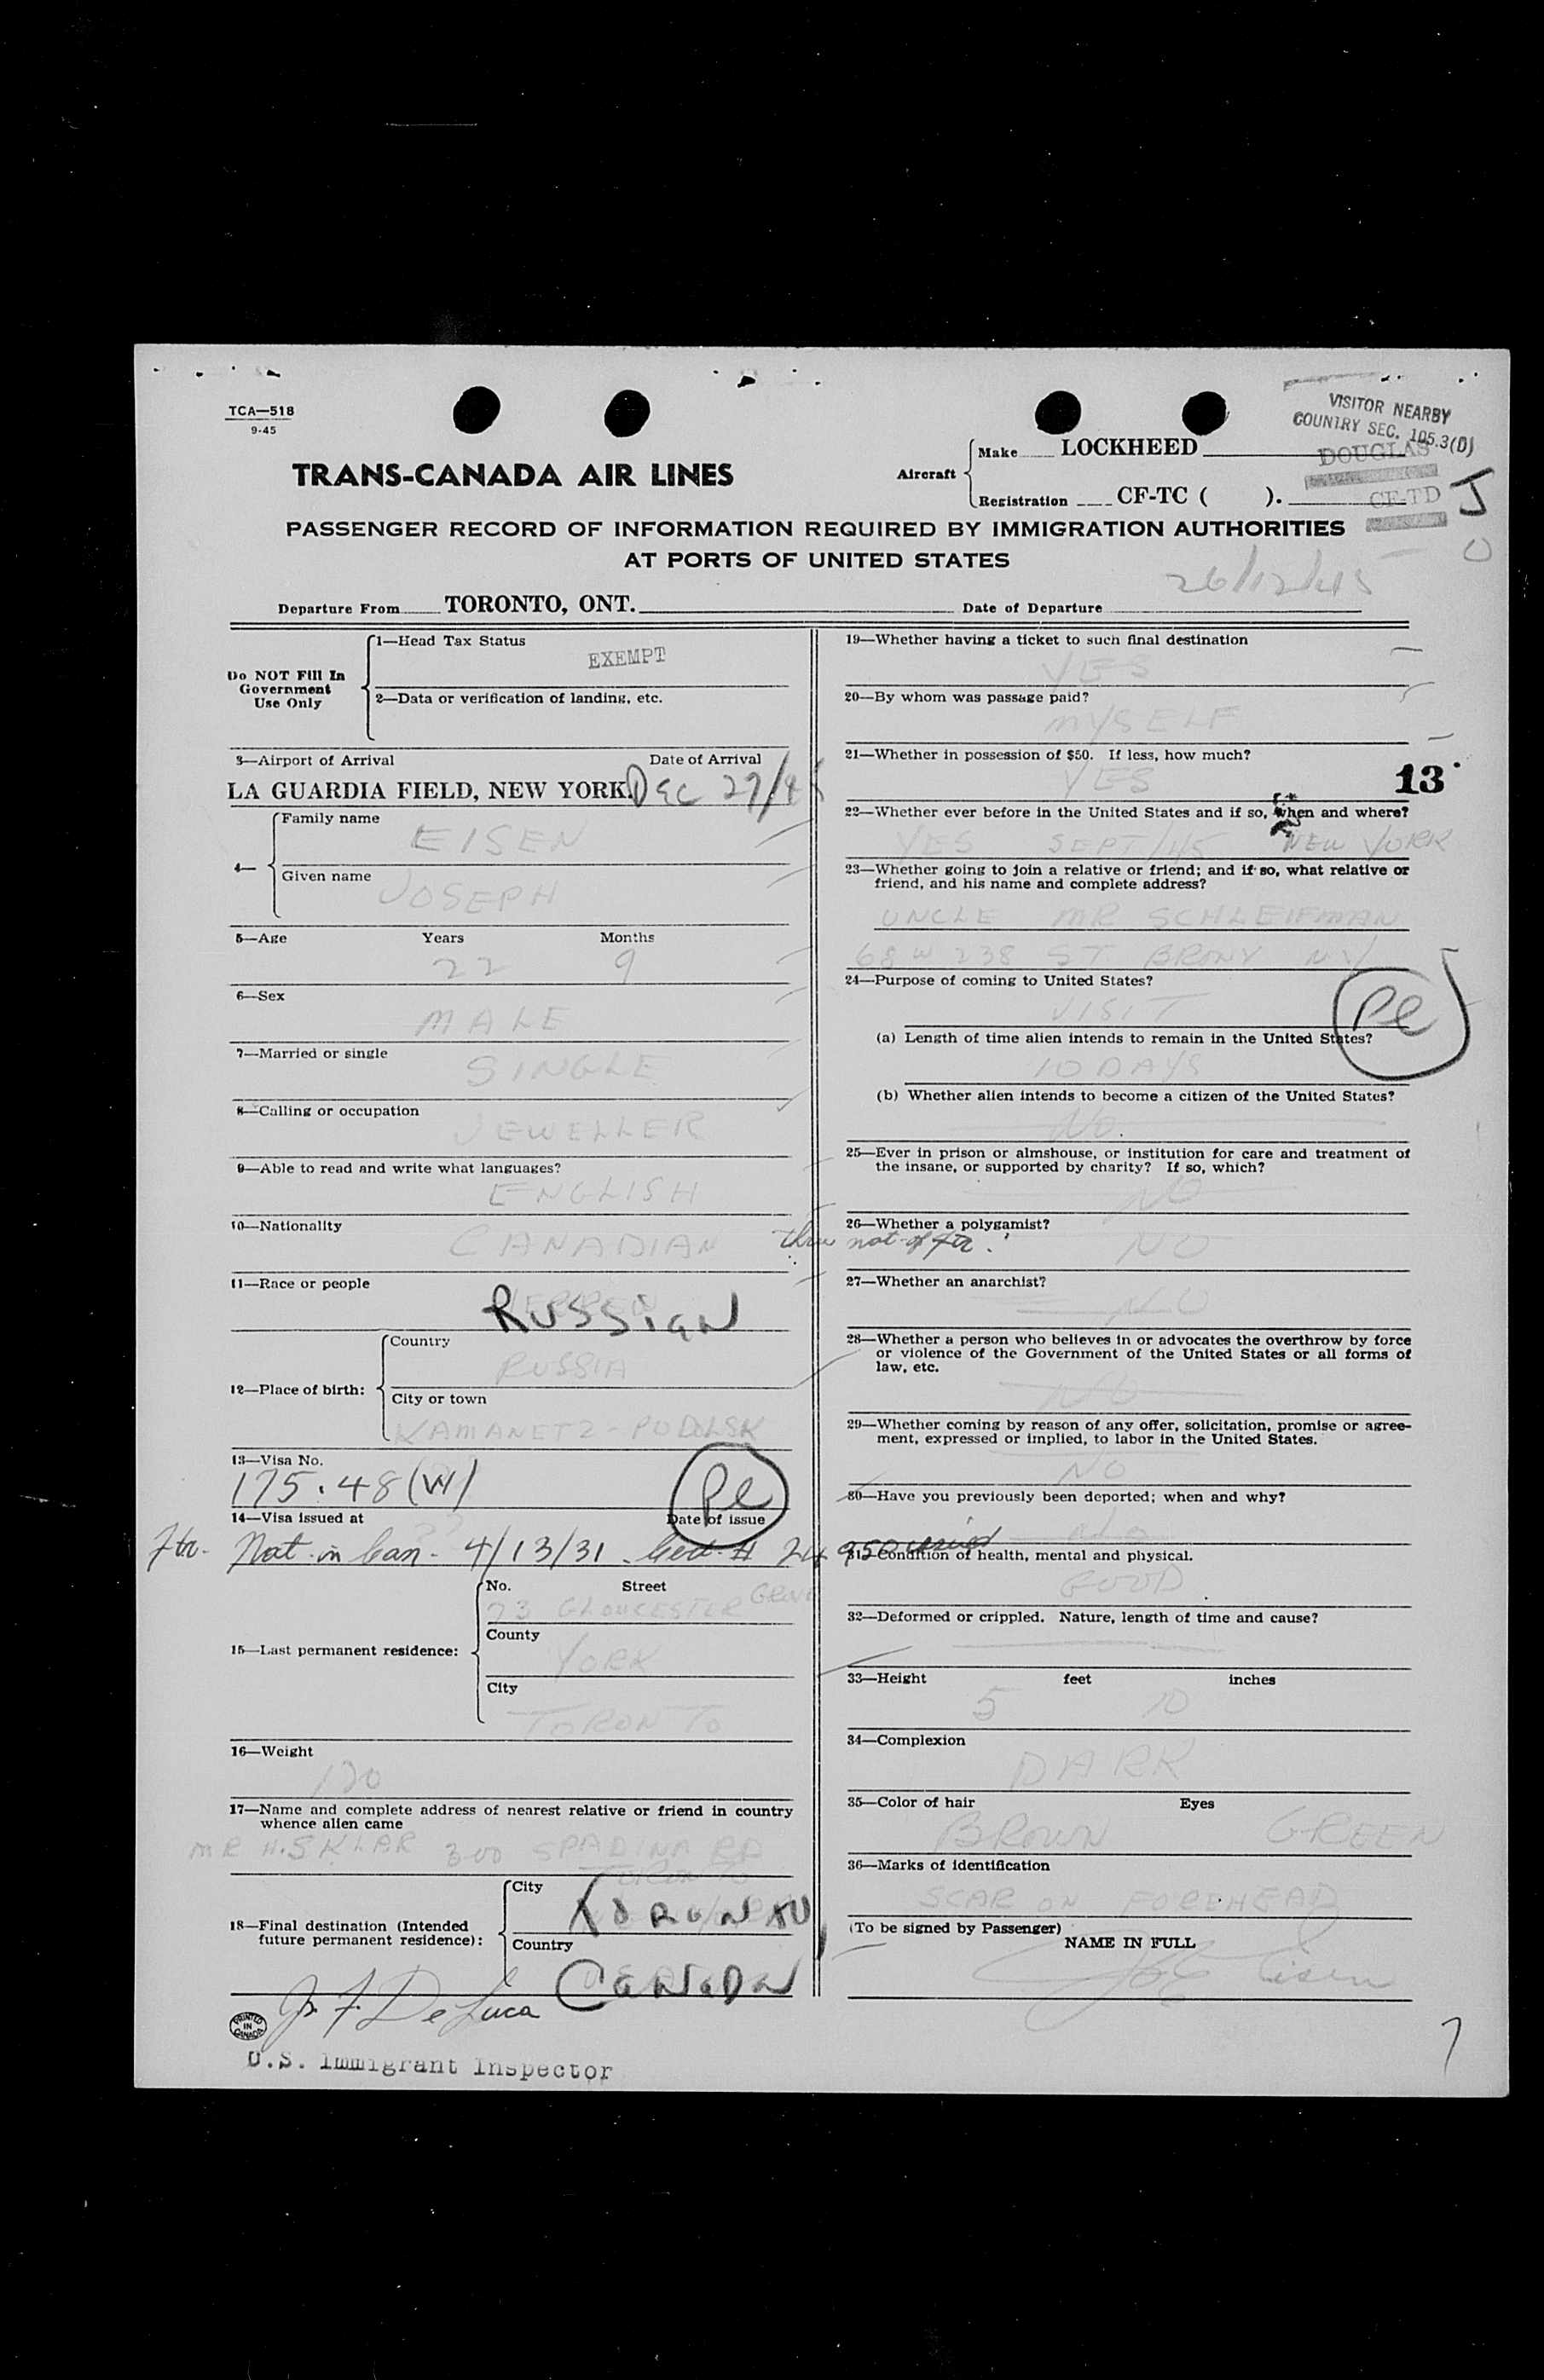 TCA—518
9-45
VISITOR NEARBY
COUNTRY SEC. 105.3(D)
TRANS-CANADA AIR LINES
Aircraft
Make LOCKHEED
DOUGLAS
Registration CF-TC ( ).
CF-TD J
PASSENGER RECORD OF INFORMATION REQUIRED BY IMMIGRATION AUTHORITIES
AT PORTS OF UNITED STATES
Departure From TORONTO, ONT. Date of Departure 26/12/45
Do NOT Fill In
Government
Use Only
1—Head Tax Status
EXEMPT
2—Data or verification of landing, etc.
3—Airport of Arrival Date of Arrival
LA GUARDIA FIELD, NEW YORK. DEC 27/45
4—
Family name
EISEN
Given name
JOSEPH
5—Age Years Months
22 9
6—Sex
MALE
7—Married or single
SINGLE
8—Calling or occupation
JEWELLER
9—Able to read and write what languages?
ENGLISH
10—Nationality
CANADIAN thru nat. of ftr.
11—Race or people
RUSSIAN
12—Place of birth:
Country
RUSSIA
City or town
KAMANETZ-PODOLSK
13—Visa No.
175.48 (W)
Pl
14—Visa issued at Date of issue
Ftr. Nat. in Can. 4/13/31. Cert. # 24950
15—Last permanent residence:
No. Street
73 GLOUCESTER GROVE
County
YORK
City
TORONTO
16—Weight
170
17—Name and complete address of nearest relative or friend in country
whence alien came
MR H. SKLAR 300 SPADINA RD
TORONTO
18—Final destination (Intended
future permanent residence):
City
TORONTO
Country
CANADA
Jr. F. DeLuca
PRINTED
IN
CANADA
U.S. Immigrant Inspector
19—Whether having a ticket to such final destination
YES
20—By whom was passage paid?
MYSELF
21—Whether in possession of $50. If less, how much?
YES
13
22—Whether ever before in the United States and if so, when and where?
YES SEPT/45 NEW YORK
23—Whether going to join a relative or friend; and if so, what relative or
friend, and his name and complete address?
UNCLE MR SCHLEIFMAN
68 W 238 ST. BRONX NY
24—Purpose of coming to United States?
VISIT
Pl
(a) Length of time alien intends to remain in the United States?
10 DAYS
(b) Whether alien intends to become a citizen of the United States?
No.
25—Ever in prison or almshouse, or institution for care and treatment of
the insane, or supported by charity? If so, which?
NO
26—Whether a polygamist?
NO
27—Whether an anarchist?
NO
28—Whether a person who believes in or advocates the overthrow by force
or violence of the Government of the United States or all forms of
law, etc.
NO
29—Whether coming by reason of any offer, solicitation, promise or agree-
ment, expressed or implied, to labor in the United States.
NO
30—Have you previously been deported; when and why?
No
31—Condition of health, mental and physical.
GOOD
32—Deformed or crippled. Nature, length of time and cause?
33—Height feet inches
5 10
34—Complexion
DARK
35—Color of hair Eyes
BROWN GREEN
36—Marks of identification
SCAR ON FOREHEAD
(To be signed by Passenger)
NAME IN FULL
Joe Eisen
7